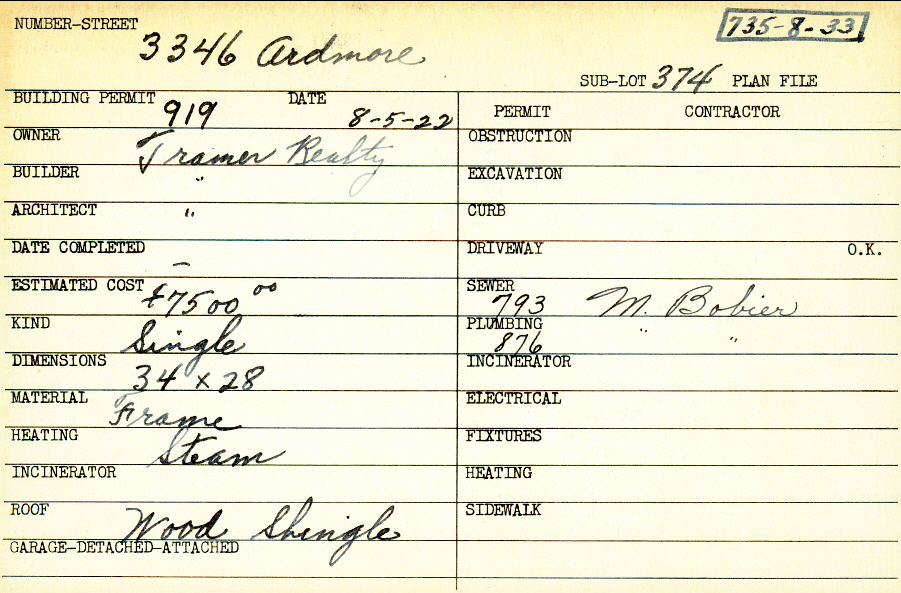 NUMBER-STREET 3346 Ardmore
735-8-33
SUB-LOT 374 PLAN FILE
BUILDING PERMIT 919 DATE 8-5-22
PERMIT CONTRACTOR
OWNER Tramer Realty
OBSTRUCTION
BUILDER "
EXCAVATION
ARCHITECT "
CURB
DATE COMPLETED —
DRIVEWAY O.K.
ESTIMATED COST $7500 00
SEWER 793 M. Bobier
KIND Single
PLUMBING 876 " "
DIMENSIONS 34 x 28
INCINERATOR
MATERIAL Frame
ELECTRICAL
HEATING Steam
FIXTURES
INCINERATOR
HEATING
ROOF Wood Shingle
SIDEWALK
GARAGE-DETACHED-ATTACHED